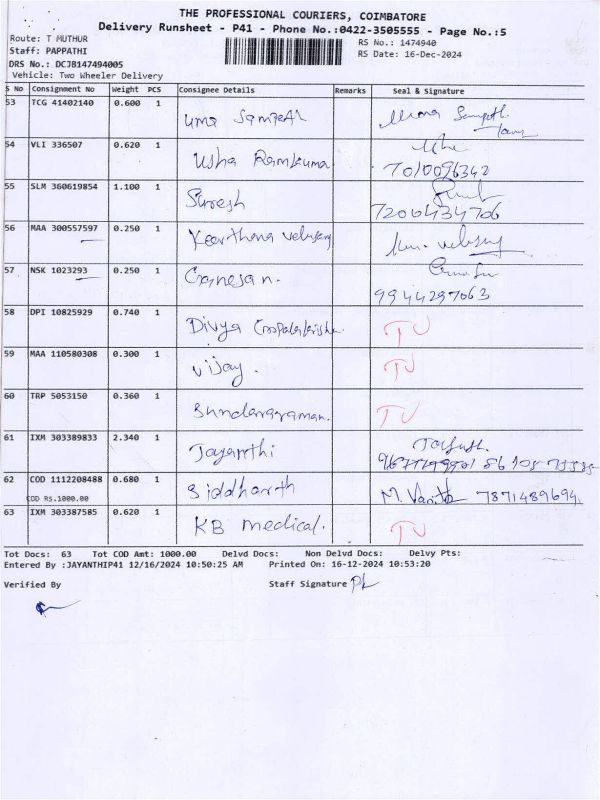 THE PROFESSIONAL COURIERS, COIMBATORE
Delivery Runsheet - P41 - Phone No.:0422-3505555 - Page No.:5
Route: T MUTHUR RS No.: 1474940
Staff: PAPPATHI RS Date: 16-Dec-2024
DRS No.: DCJB147494005
Vehicle: Two Wheeler Delivery
S No Consignment No Weight PCS Consignee Details Remarks Seal & Signature
53 TCG 41402140 0.600 1 Uma Sampath Uma Sampath
54 VLI 336507 0.620 1 Usha Ramkuma 7010096342
55 SLM 360619854 1.100 1 Suresh 7200434706
56 MAA 300557597 0.250 1 Keerthana velusamy
57 NSK 1023293 0.250 1 Ganesan. 9944297063
58 DPI 10825929 0.740 1 Divya Gopalakrishn. TU
59 MAA 110580308 0.300 1 Vijay. TU
60 TRP 5053150 0.360 1 Sundararaman. TU
61 IXM 303389833 2.340 1 Jayanthi
62 COD 1112208488 0.680 1 Siddharth M. Vanitha 7871489694
COD RS.1000.00
63 IXM 303387585 0.620 1 KB medical. TU
Tot Docs: 63 Tot COD Amt: 1000.00 Delvd Docs: Non Delvd Docs: Delvy Pts:
Entered By :JAYANTHIP41 12/16/2024 10:50:25 AM Printed On: 16-12-2024 10:53:20
Verified By Staff Signature